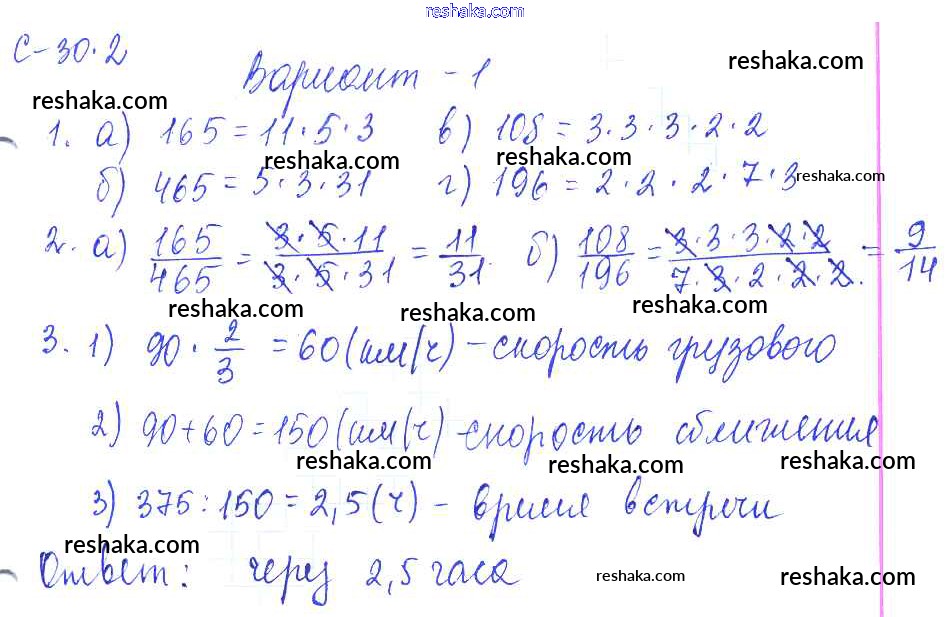 reshaka.com
С-30.2
Вариант - 1
reshaka.com
reshaka.com
1. а) 165 = 11 · 5 · 3 в) 108 = 3 · 3 · 3 · 2 · 2
reshaka.com reshaka.com
б) 465 = 5 · 3 · 31 г) 196 = 2 · 2 · 2 · 7 · 3
reshaka.com
2. а) 165/465 = 3 · 5 · 11/3 · 5 · 31 = 11/31. б) 108/196 = 3 · 3 · 3 · 2 · 2/7 · 3 · 2 · 2 · 2. = 9/14
reshaka.com reshaka.com reshaka.com
3. 1) 90 · 2/3 = 60 (км/ч) - скорость грузового
2) 90 + 60 = 150 (км/ч) - скорость сближения
reshaka.com reshaka.com reshaka.com
3) 375 : 150 = 2,5 (ч) - время встречи
reshaka.com
Ответ: через 2,5 часа
reshaka.com reshaka.com